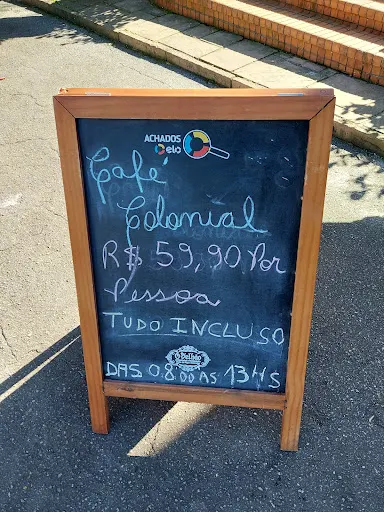 ACHADOS
elo
Café
Colonial
R$ 59,90 Por
Pessoa
TUDO INCLUSO
DAS 08:00 AS 13Hs